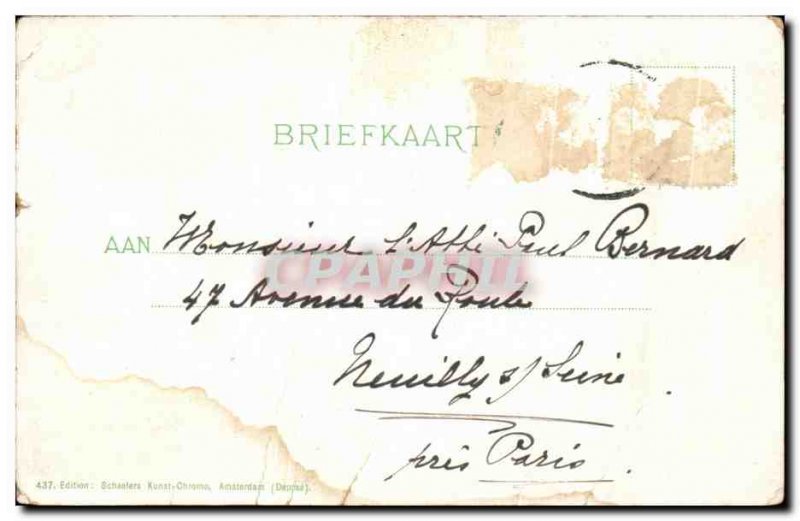 BRIEFKAART
AAN Monsieur l'Abbé Paul Bernard
CPAPHIL
47 Avenue du Roule
Neuilly s/ Seine.
près Paris.
437. Edition: Schaefers Kunst-Chromo, Amsterdam (Deposé).